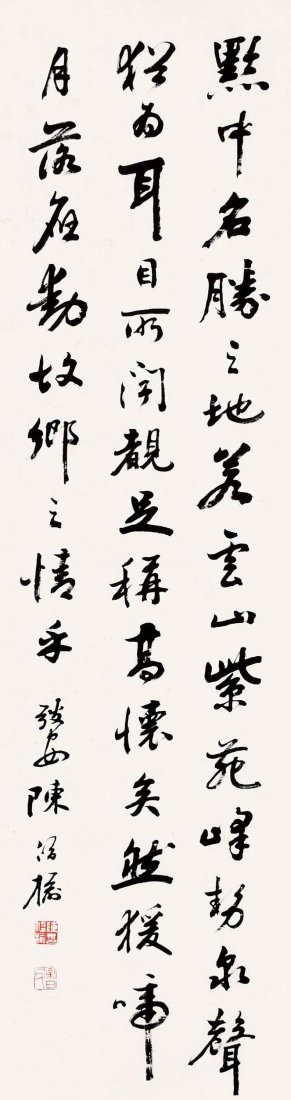 黔中名勝之地若雲山紫苑峰勢泉聲
猶為耳目所聞覩足稱高懷矣然猨啼
月落在動故鄉之情乎
陳